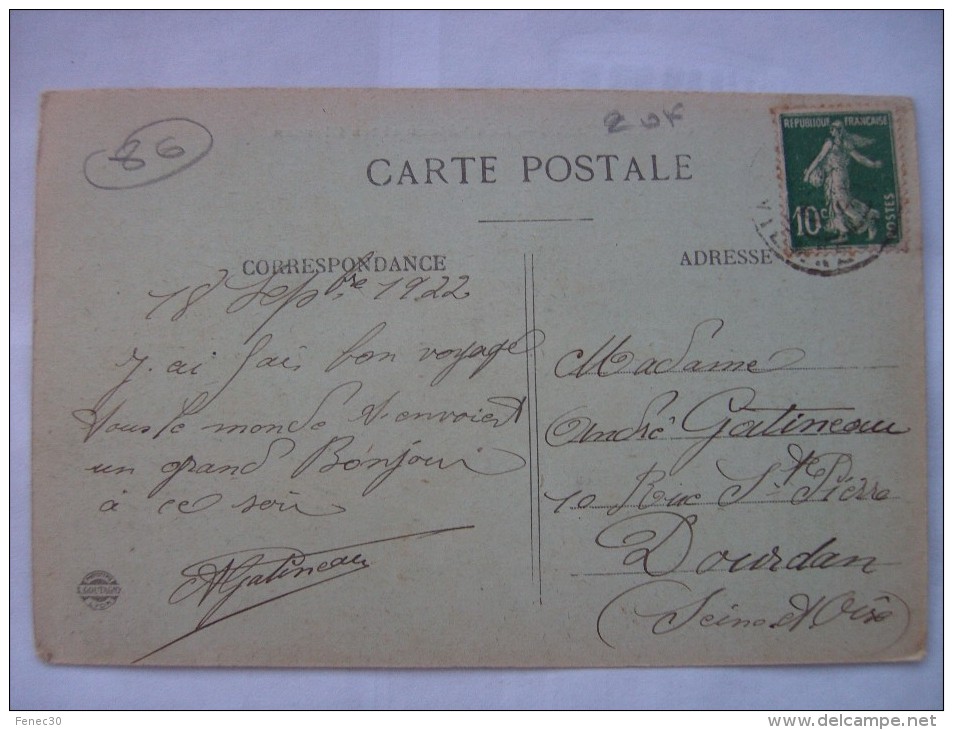 86
20f
CARTE POSTALE
REPUBLIQUE FRANÇAISE
10c
POSTES
CORRESPONDANCE
ADRESSE
18 Sepbre 1922
J'ai fais bon voyage
tous le monde t'envoient
un grand Bonjour
à ce soir
AGatineau
Madame
André Gatineau
10 Rue St Pierre
Dourdan
(Seine et Oise)
S. GOUTAGNY
LYON
Fenec30
http://www.delcampe.net